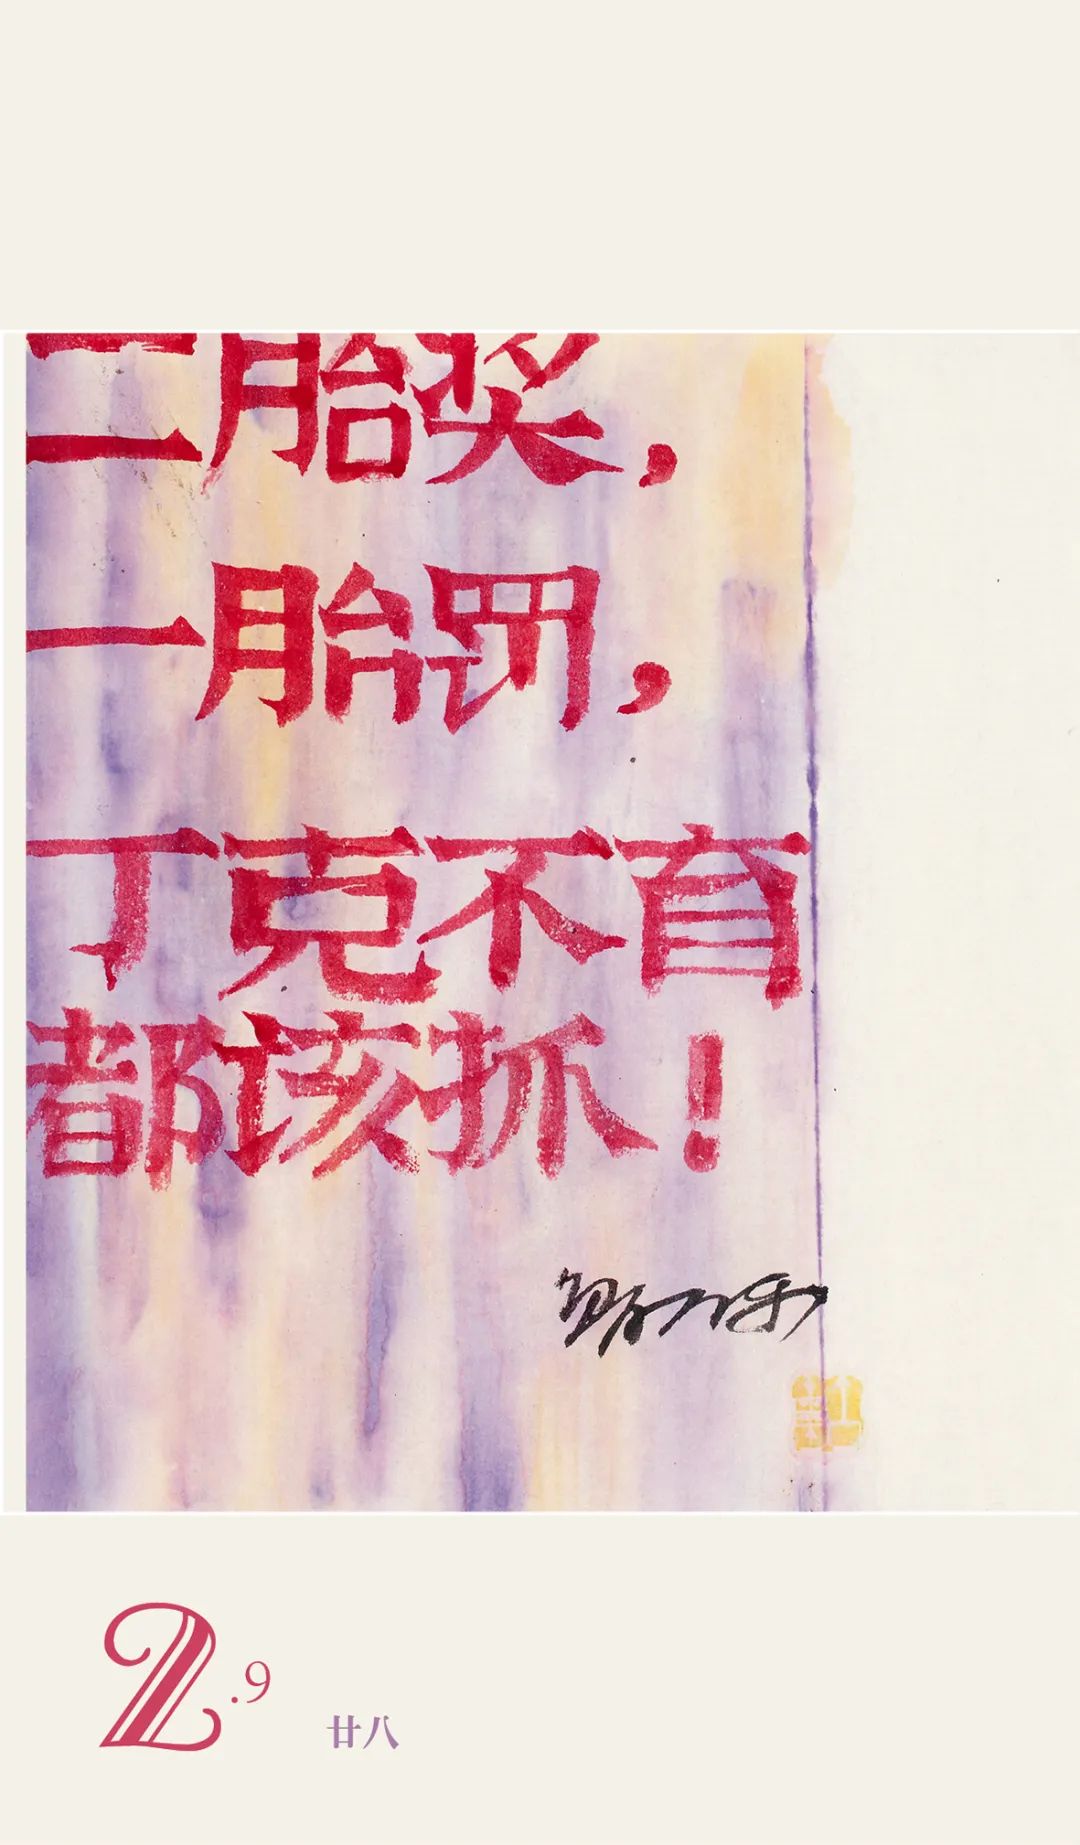 二胎奖，
一胎罚，
丁克不育
都该抓！
2.9
廿八